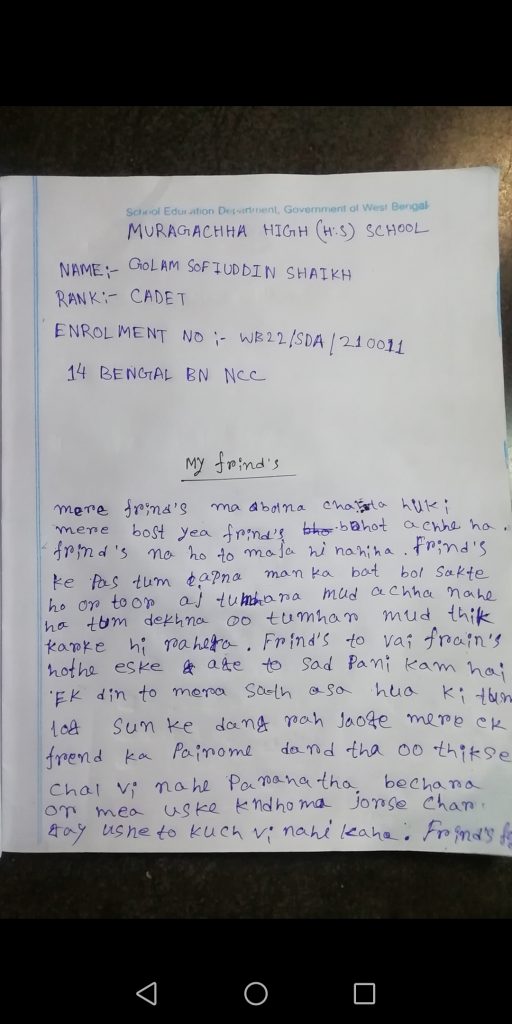 School Education Department, Government of West Bengal
MURAGACHHA HIGH (H.S) SCHOOL
NAME:- GOLAM SOFIUDDIN SHAIKH
RANK:- CADET
ENROLMENT NO :- WB22/SDA/210011
14 BENGAL BN NCC
My frind's
mere frind's ma abolna cha ta huki
mere bost yea frind's bahot achhe ha.
frind's na ho to maja hi nahiha. Frind's
ke Pas tum apna man ka bat bol sakte
ho or toor aj tumhara mud achha nahe
ha tum dekhna oo tumhar mud thik
karke hi rahega. Frind's to vai frain's
hothe eske age to sad Pani kam hai
EK din to mera sath asa hua ki tum
log sun ke dang rah jaoge mere ek
frend ka Pairome dard tha oo thikse
chal vi nahe Parahatha. bechara
or mea uske kndhoma jorse
ushe to kuch vi nahi kaha. Frind's